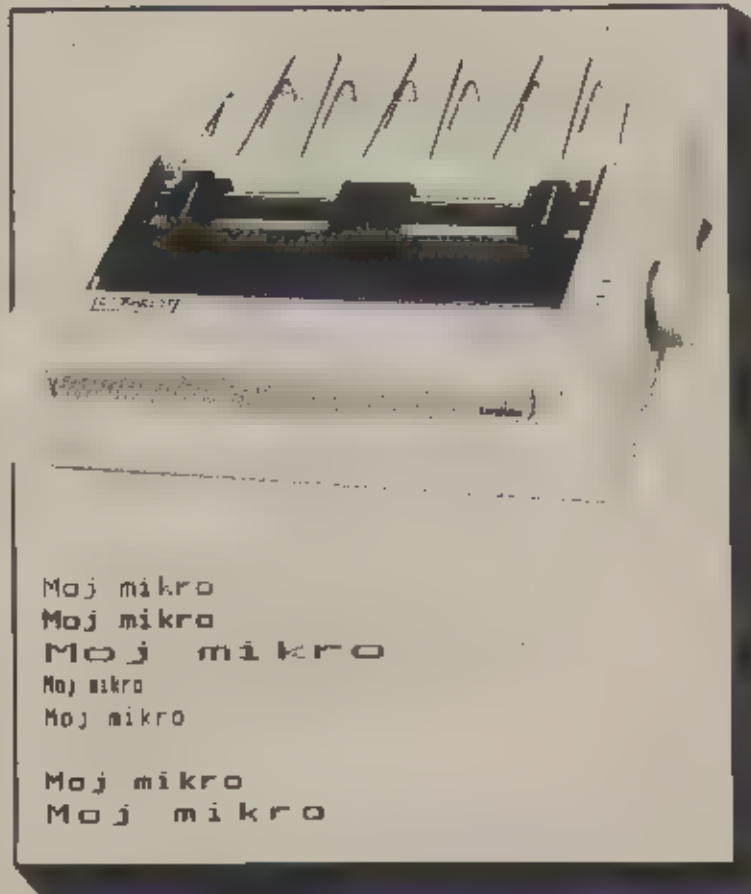 Moj mikro
Moj mikro
Moj mikro
Moj mikro
Moj mikro
Moj mikro
Moj mikro